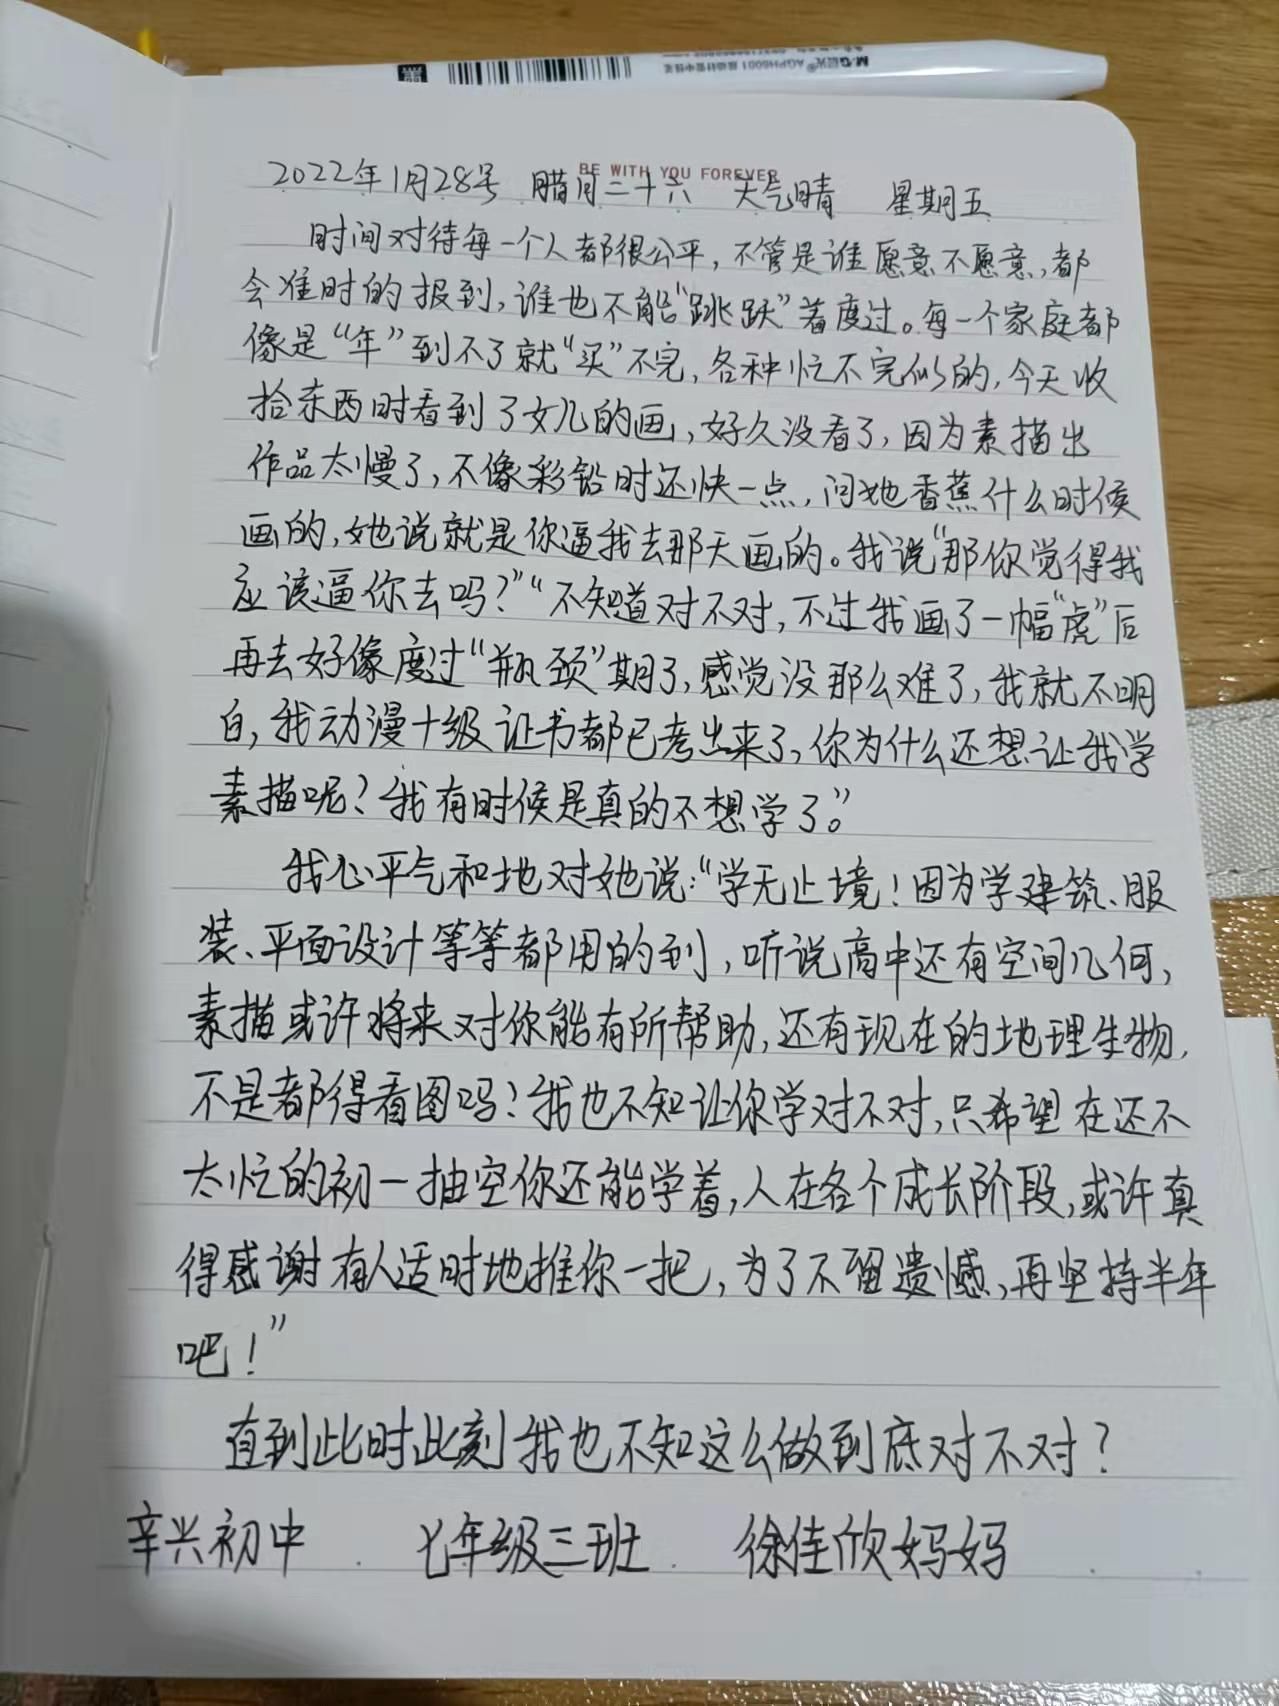 M&G晨光 AGPH5601
BE WITH YOU FOREVER
2022年1月28号 腊月二十六 天气晴 星期五
时间对待每一个人都很公平,不管是谁愿意不愿意,都
会准时的报到,谁也不能“跳跃”着度过。每一个家庭都
像是“年”到不了就“买”不完,各种忙不完似的,今天收
拾东西时看到了女儿的画,好久没看了,因为素描出
作品太慢了,不像彩铅时还快一点,问她香蕉什么时候
画的,她说就是你逼我去那天画的。我说“那你觉得我
应该逼你去吗?”“不知道对不对,不过我画了一幅“虎”后
再去好像度过“瓶颈”期了,感觉没那么难了,我就不明
白,我动漫十级证书都已考出来了,你为什么还想让我学
素描呢?我有时候是真的不想学了。”
我心平气和地对她说:“学无止境!因为学建筑、服
装、平面设计等等都用的到,听说高中还有空间几何,
素描或许将来对你能有所帮助,还有现在的地理生物,
不是都得看图吗?我也不知让你学对不对,只希望在还不
太忙的初一抽空你还能学着,人在各个成长阶段,或许真
得感谢有人适时地推你一把,为了不留遗憾,再坚持半年
吧!”
直到此时此刻我也不知这么做到底对不对?
辛兴初中 七年级三班 徐佳欣妈妈